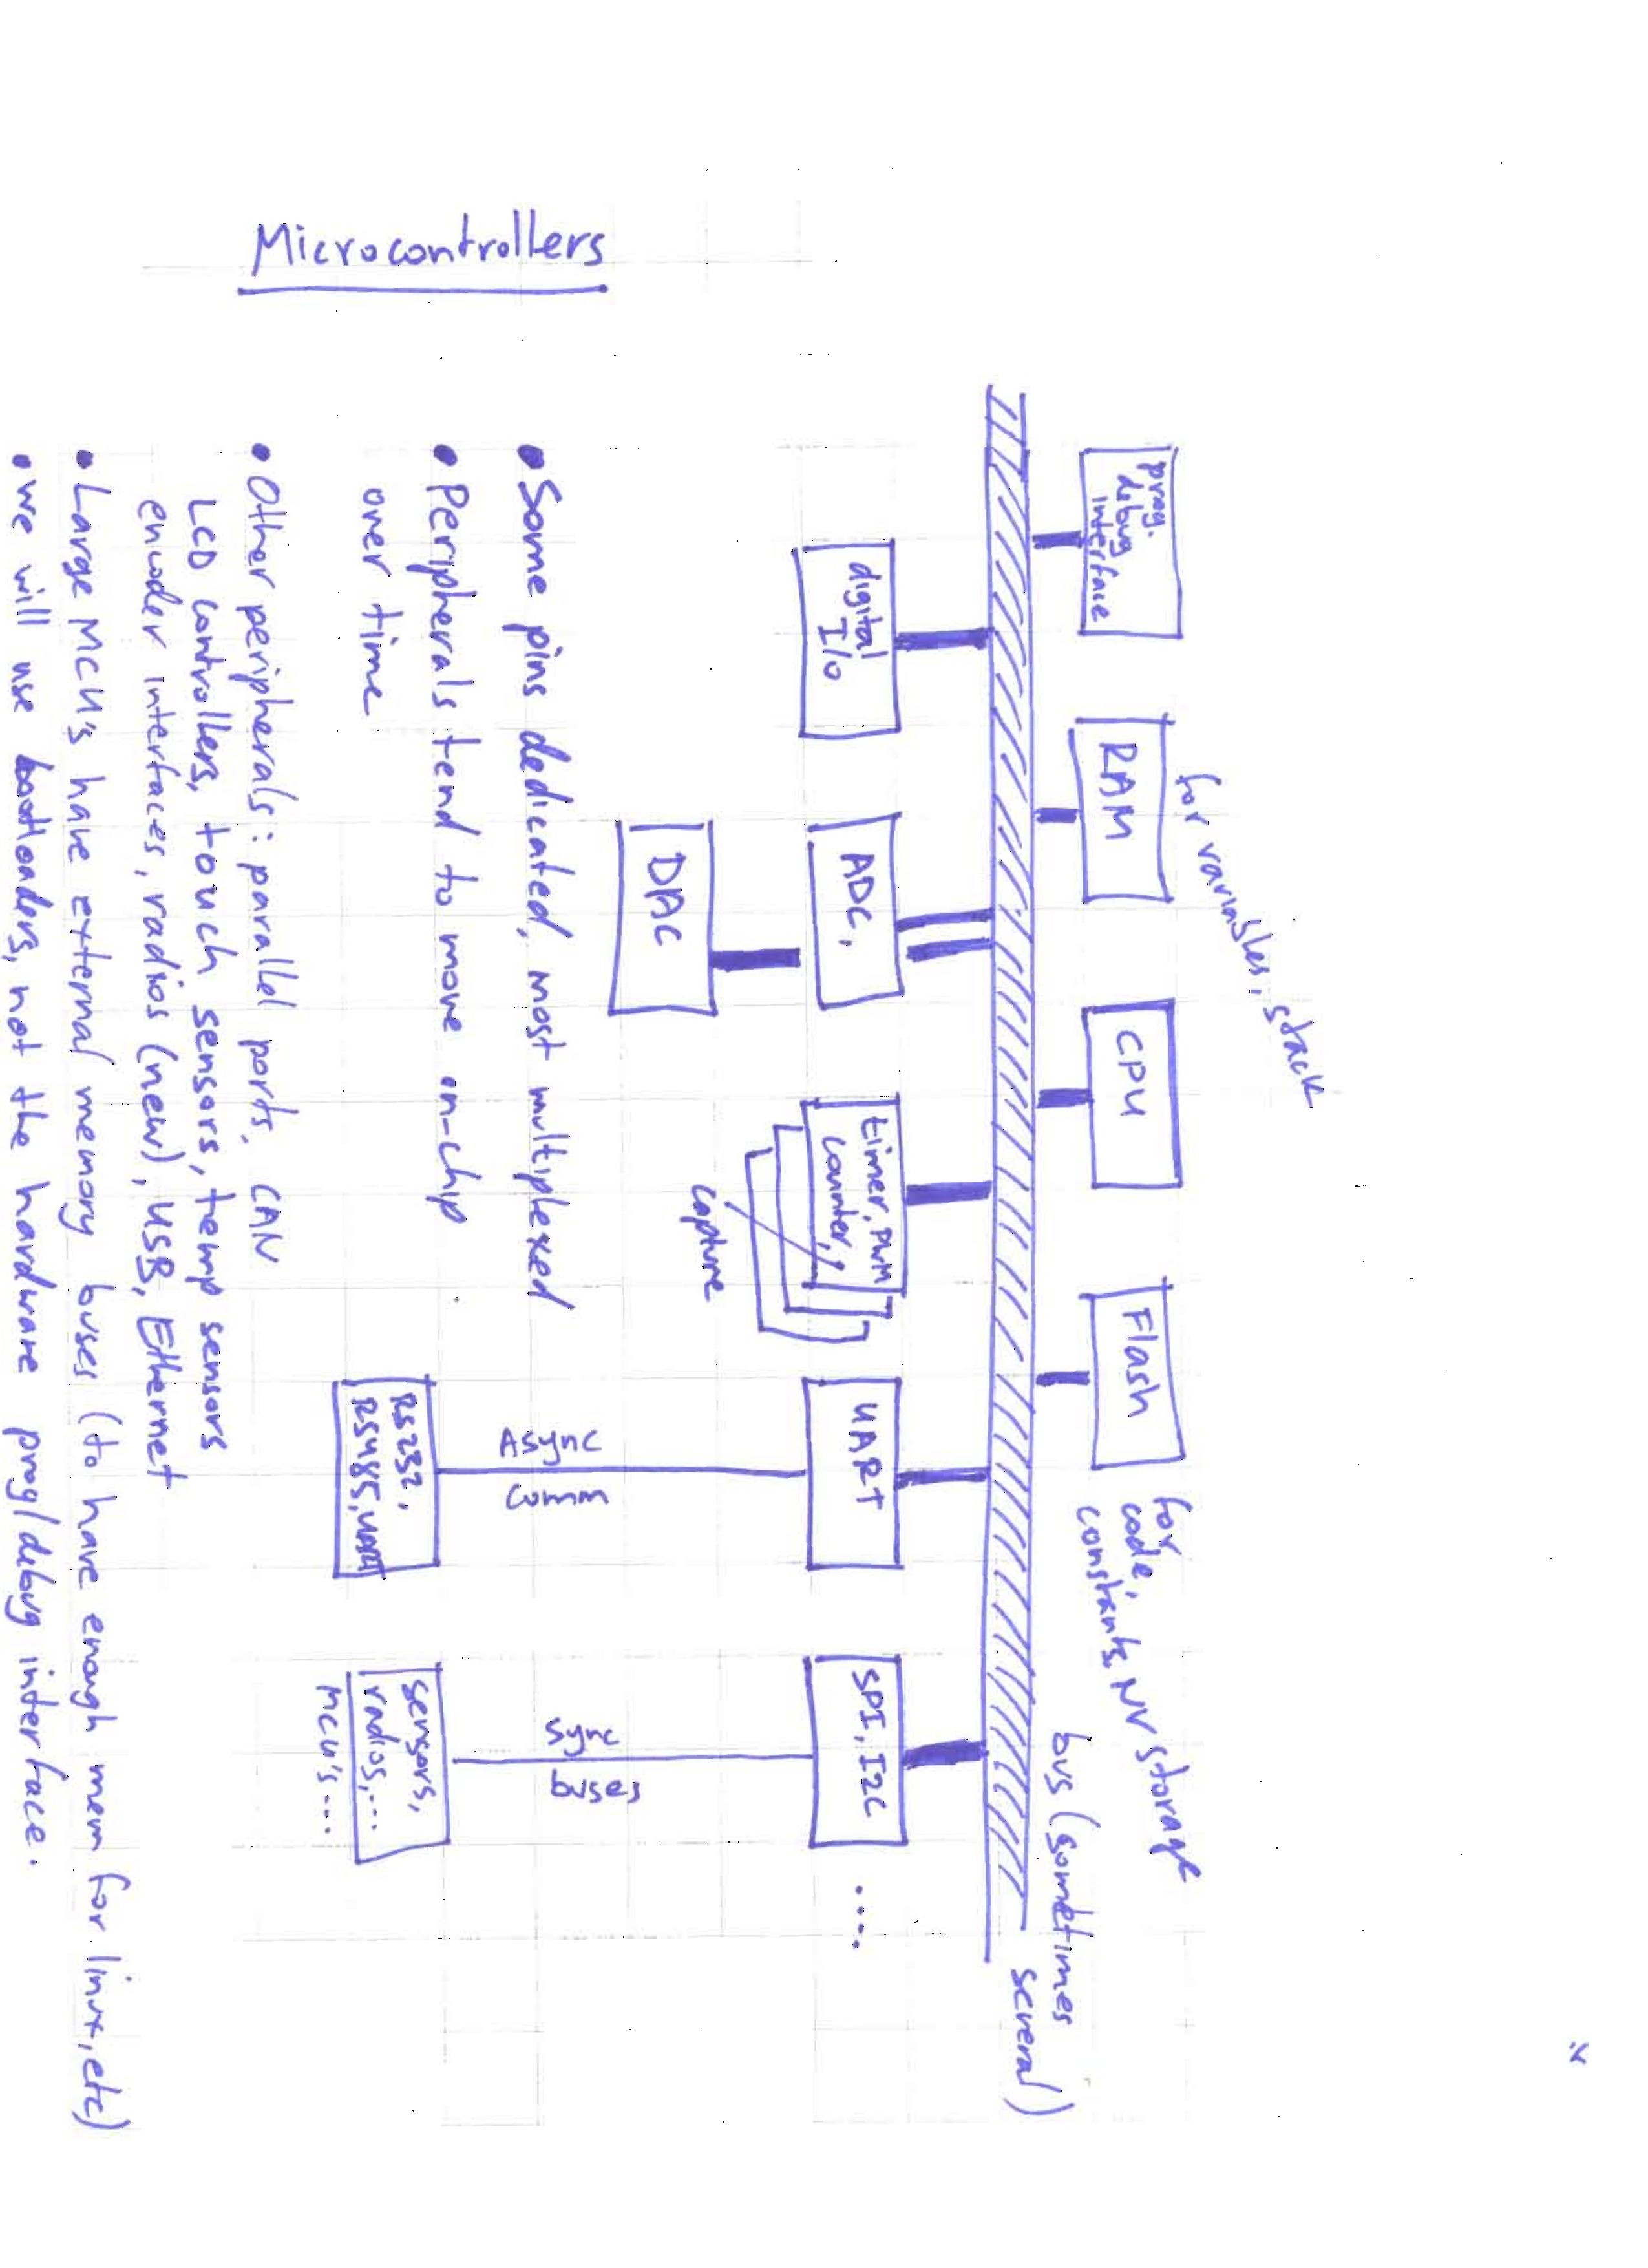 Microcontrollers
prog.
debug
interface
RAM
for variables, stack
CPU
Flash
for
code,
constants, NV storage
bus (sometimes
several)
digital
I/O
ADC,
DAC
timer, PWM
counter,
capture
UART
Async
comm
RS232,
RS485, UART
SPI, I2C
sync
buses
sensors,
radios,...
MCU's....
....
• Some pins dedicated, most multiplexed
• Peripherals tend to move on-chip
over time
• Other peripherals: parallel ports, CAN
LCD controllers, touch sensors, temp sensors
encoder interfaces, radios (new), USB, Ethernet
• Large MCU's have external memory buses (to have enough mem for linux, etc)
• we will use bootloaders, not the hardware prog/debug interface.